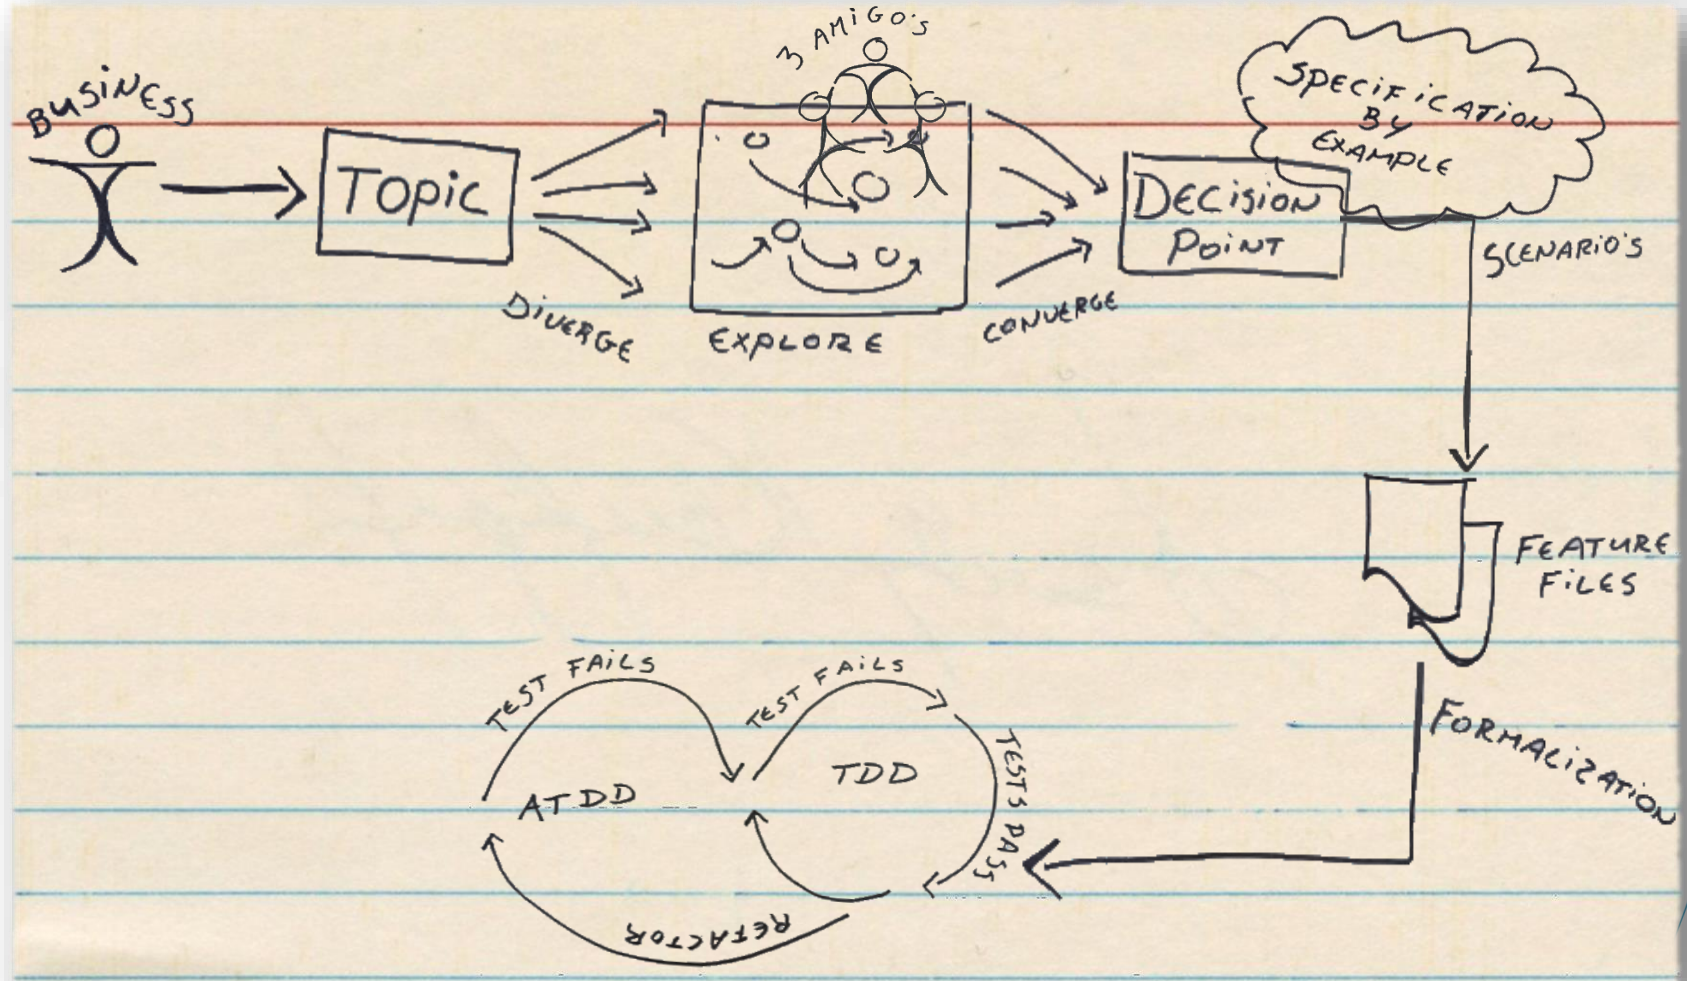 BUSINESS
TOPIC
DIVERGE
3 AMIGO'S
EXPLORE
CONVERGE
DECISION
POINT
SPECIFICATION
BY
EXAMPLE
SCENARIO'S
FEATURE
FILES
FORMALIZATION
TEST FAILS
ATDD
TEST FAILS
TDD
TESTS PASS
REFACTOR